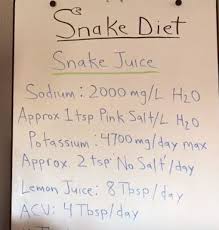 Snake Diet
Snake Juice
Sodium: 2000 mg/L H2O
Approx 1 tsp Pink Salt/L H2O
Potassium: 4700 mg/day max
Approx. 2 tsp No Salt/day
Lemon Juice: 8 Tbsp/day
ACV: 4 Tbsp/day